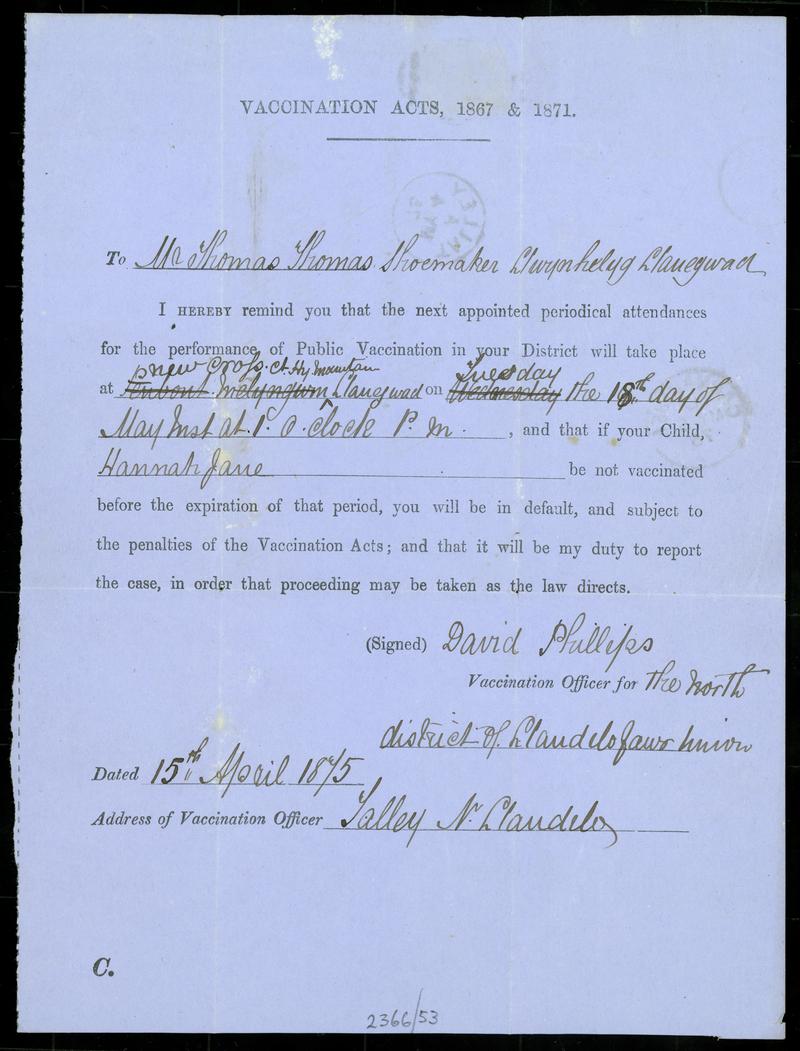 VACCINATION ACTS, 1867 & 1871.
To Mr Thomas Thomas Shoemaker Llwynhelyg Llanegwad
I HEREBY remind you that the next appointed periodical attendances
for the performance of Public Vaccination in your District will take place
new Cross Ct. Hy. mountain Tuesday
at Melyngwm Llanegwad on Wednesday the 18th day of
May Inst at 1. O. clock P. m. , and that if your Child,
Hannah Jane be not vaccinated
before the expiration of that period, you will be in default, and subject to
the penalties of the Vaccination Acts; and that it will be my duty to report
the case, in order that proceeding may be taken as the law directs.
(Signed) David Phillips
Vaccination Officer for the North
district of Llandelofawr Union
Dated 15th April 1875
Address of Vaccination Officer Talley Nr. Llandelo
C.
2366/53